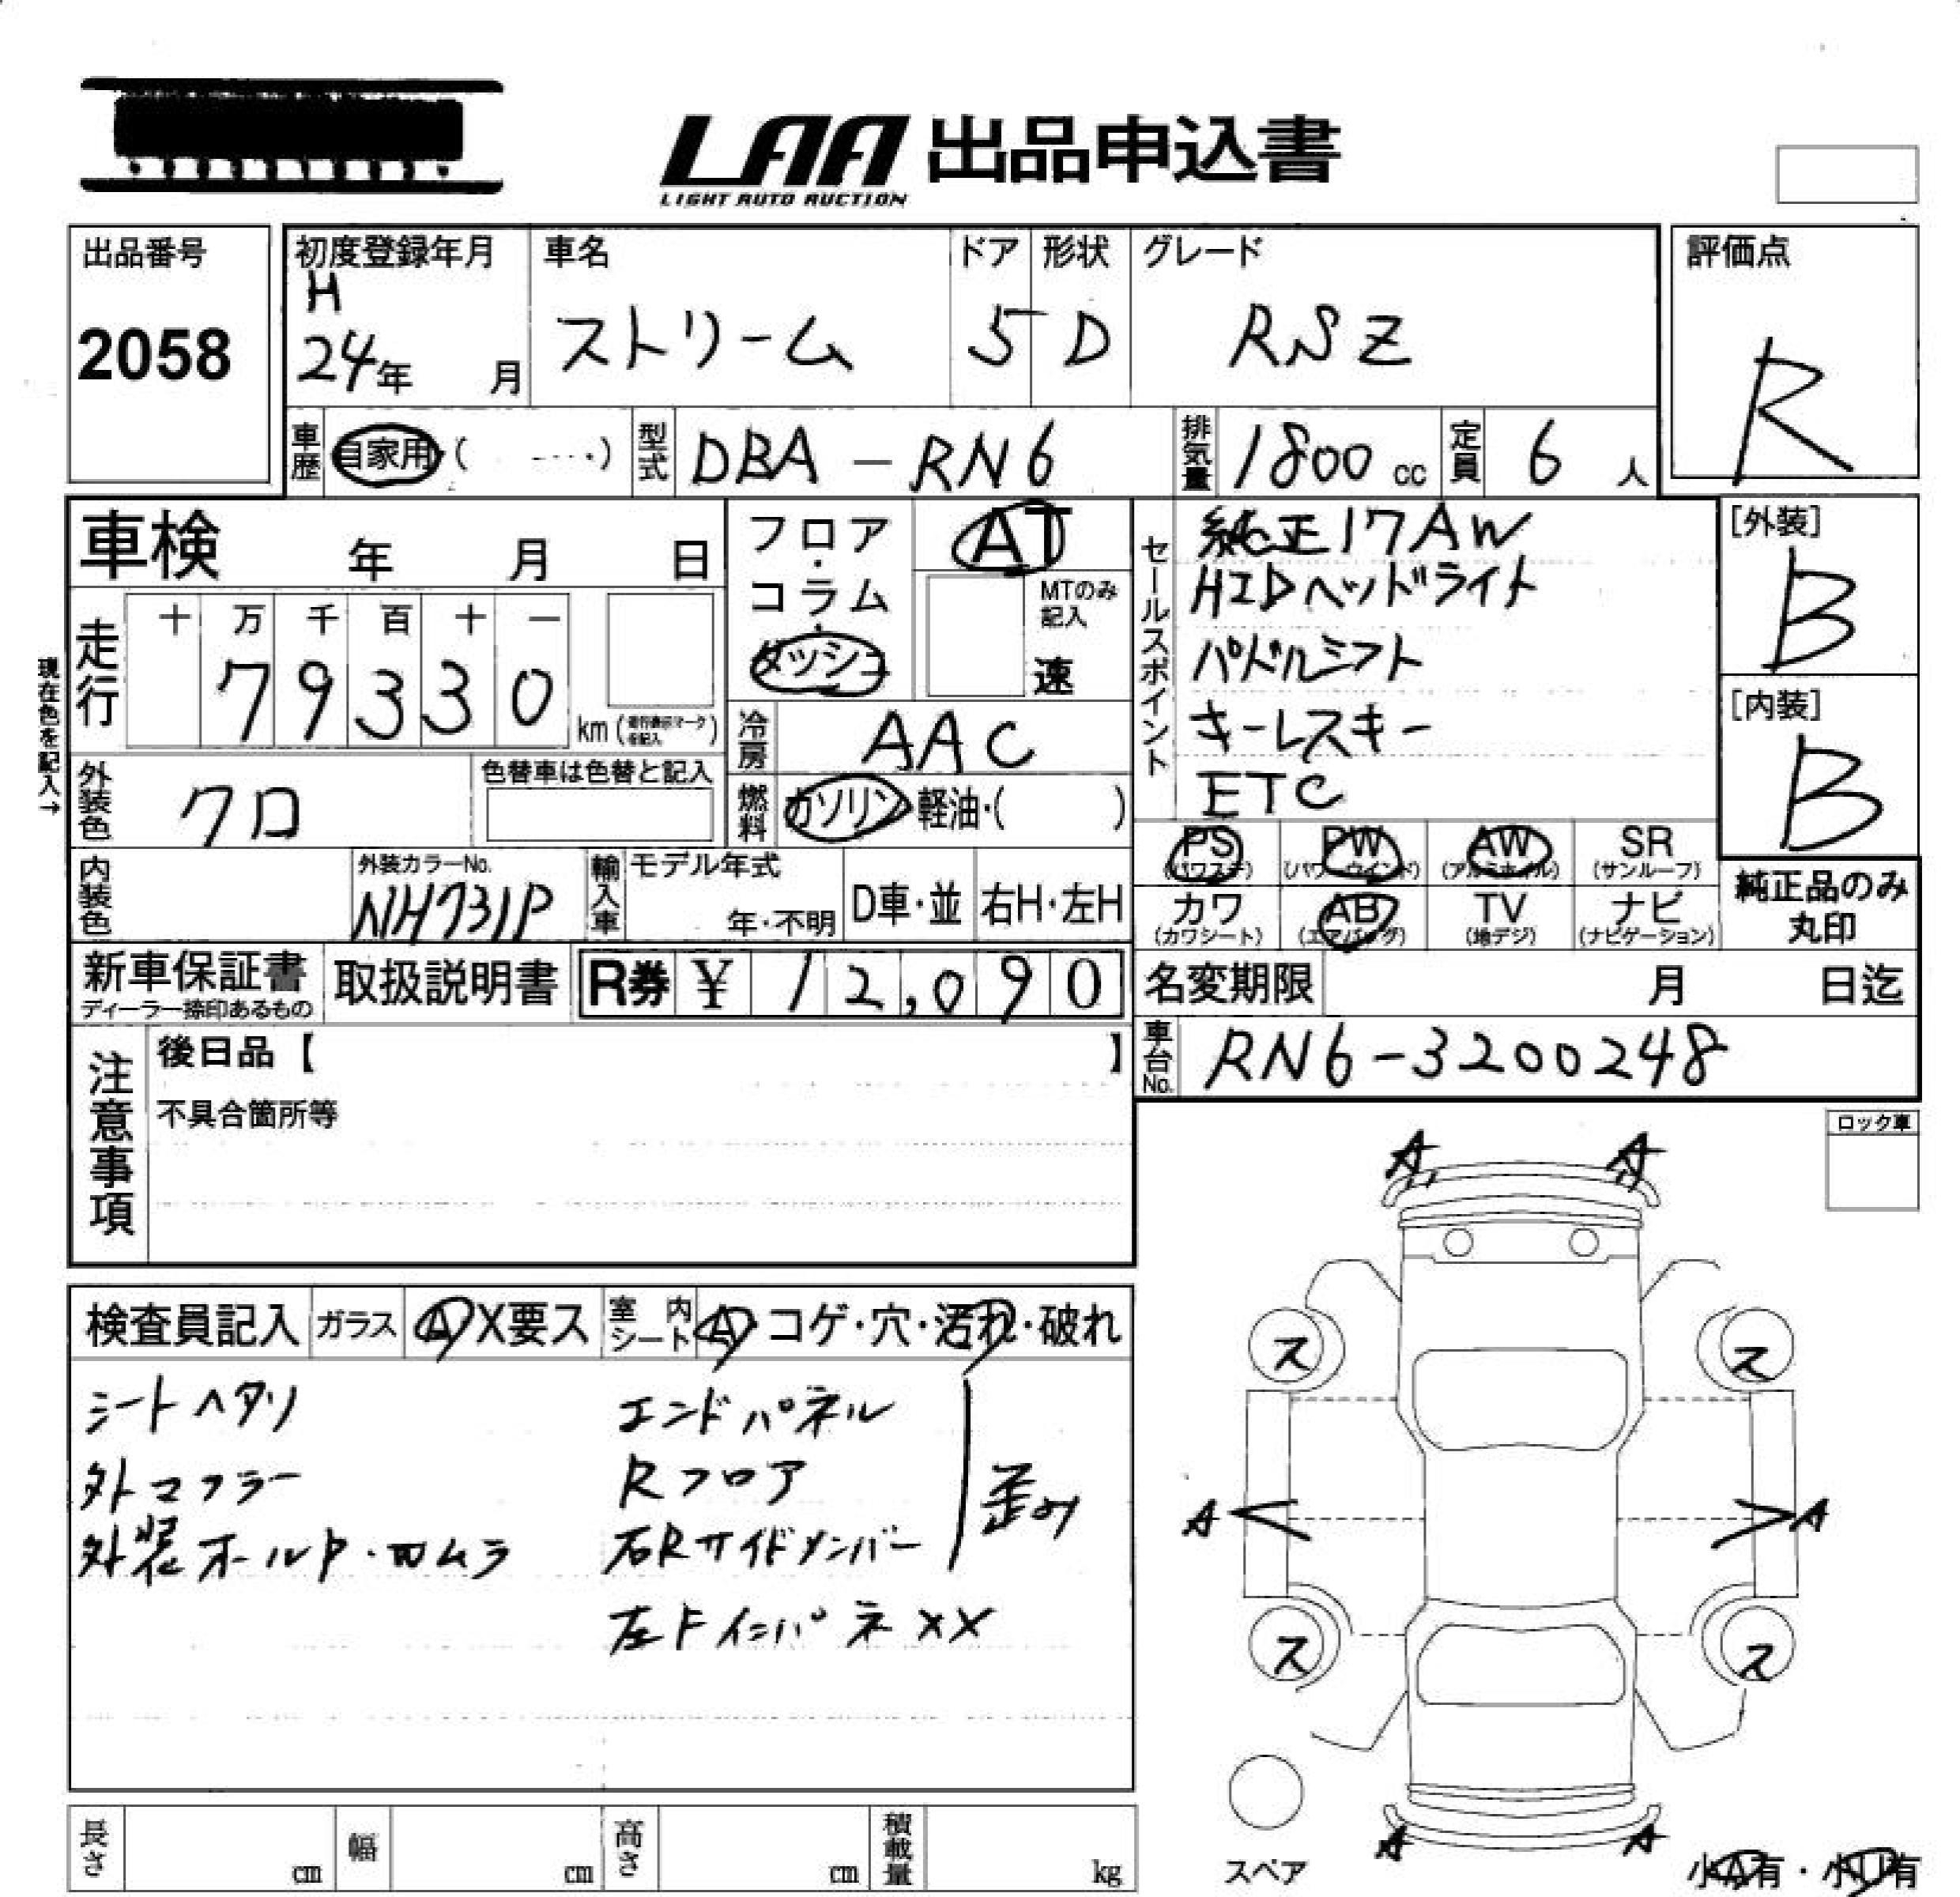 LAA 出品申込書
LIGHT AUTO AUCTION
出品番号
2058
初度登録年月
H
24年 月
車名
ストリーム
ドア
5
形状
D
グレード
RSZ
評価点
R
車歴
自家用 ( )
型式
DBA-RN6
排気量
1800 cc
定員
6 人
車検 年 月 日
フロア・コラム・ダッシュ
AT
MTのみ記入
速
走行
十 万 千 百 十 一
7 9 3 3 0
km
現在色を記入→
冷房
AAC
外装色
クロ
色替車は色替と記入
燃料
ガソリン・軽油・( )
内装色
外装カラーNo.
NH731P
輸入車
モデル年式
年・不明
D車・並
右H・左H
セールスポイント
純正17AW
HIDヘッドライト
パドルシフト
キーレスキー
ETC
[外装]
B
[内装]
B
PS (パワステ)
PW (パワーウインド)
AW (アルミホイル)
SR (サンルーフ)
カワ (カワシート)
AB (エアバッグ)
TV (地デジ)
ナビ (ナビゲーション)
純正品のみ
丸印
新車保証書
ディーラー捺印あるもの
取扱説明書
R券 ¥ 12,090
名変期限 月 日迄
車台No.
RN6-3200248
注意事項
後日品【 】
不具合箇所等
ロック車
検査員記入
ガラス
A X要ス
室内シート
A コゲ・穴・汚れ・破れ
シートヘタリ
外マフラー
エンドパネル
Rフロア
右Rサイドメンバー
歪み
左Fインパネ XX
A A
ス ス
A A
ス ス
A A
スペア
小A有・小U有
長さ cm
幅 cm
高さ cm
積載量 kg